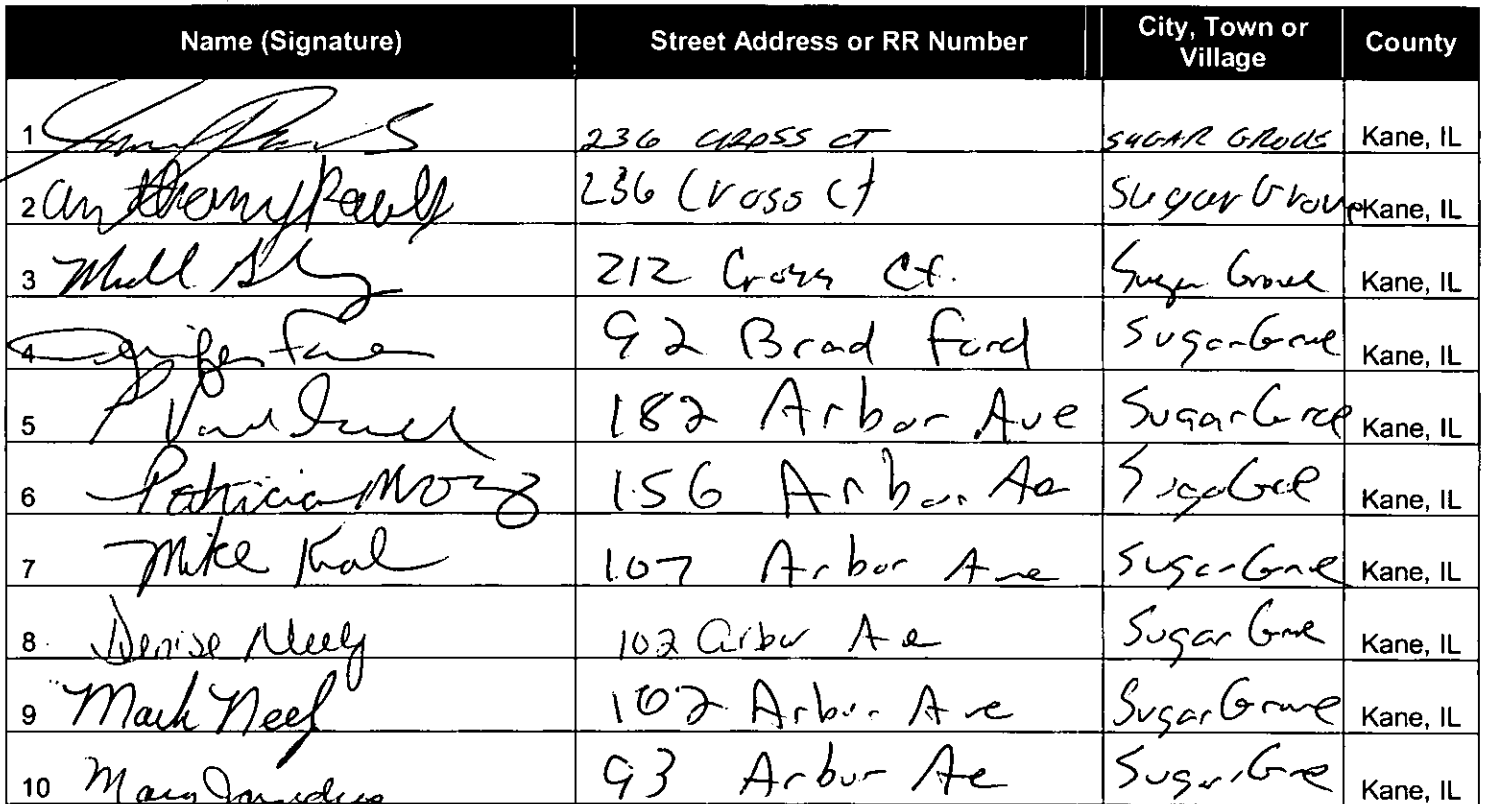 Name (Signature) Street Address or RR Number City, Town or Village County
1 236 CROSS CT SUGAR GROVE Kane, IL
2 Anthony 236 Cross Ct Sugar Grove Kane, IL
3 212 Cross Ct. Sugar Grove Kane, IL
4 Jennifer 92 Brad ford Sugar Grove Kane, IL
5 182 Arbor Ave Sugar Grove Kane, IL
6 Patricia 156 Arbor Ave Sugar Grove Kane, IL
7 Mike Kral 107 Arbor Ave Sugar Grove Kane, IL
8 Denise Neely 102 Arbor Ave Sugar Grove Kane, IL
9 Mark Neely 102 Arbor Ave Sugar Grove Kane, IL
10 Mary 93 Arbor Ave Sugar Grove Kane, IL